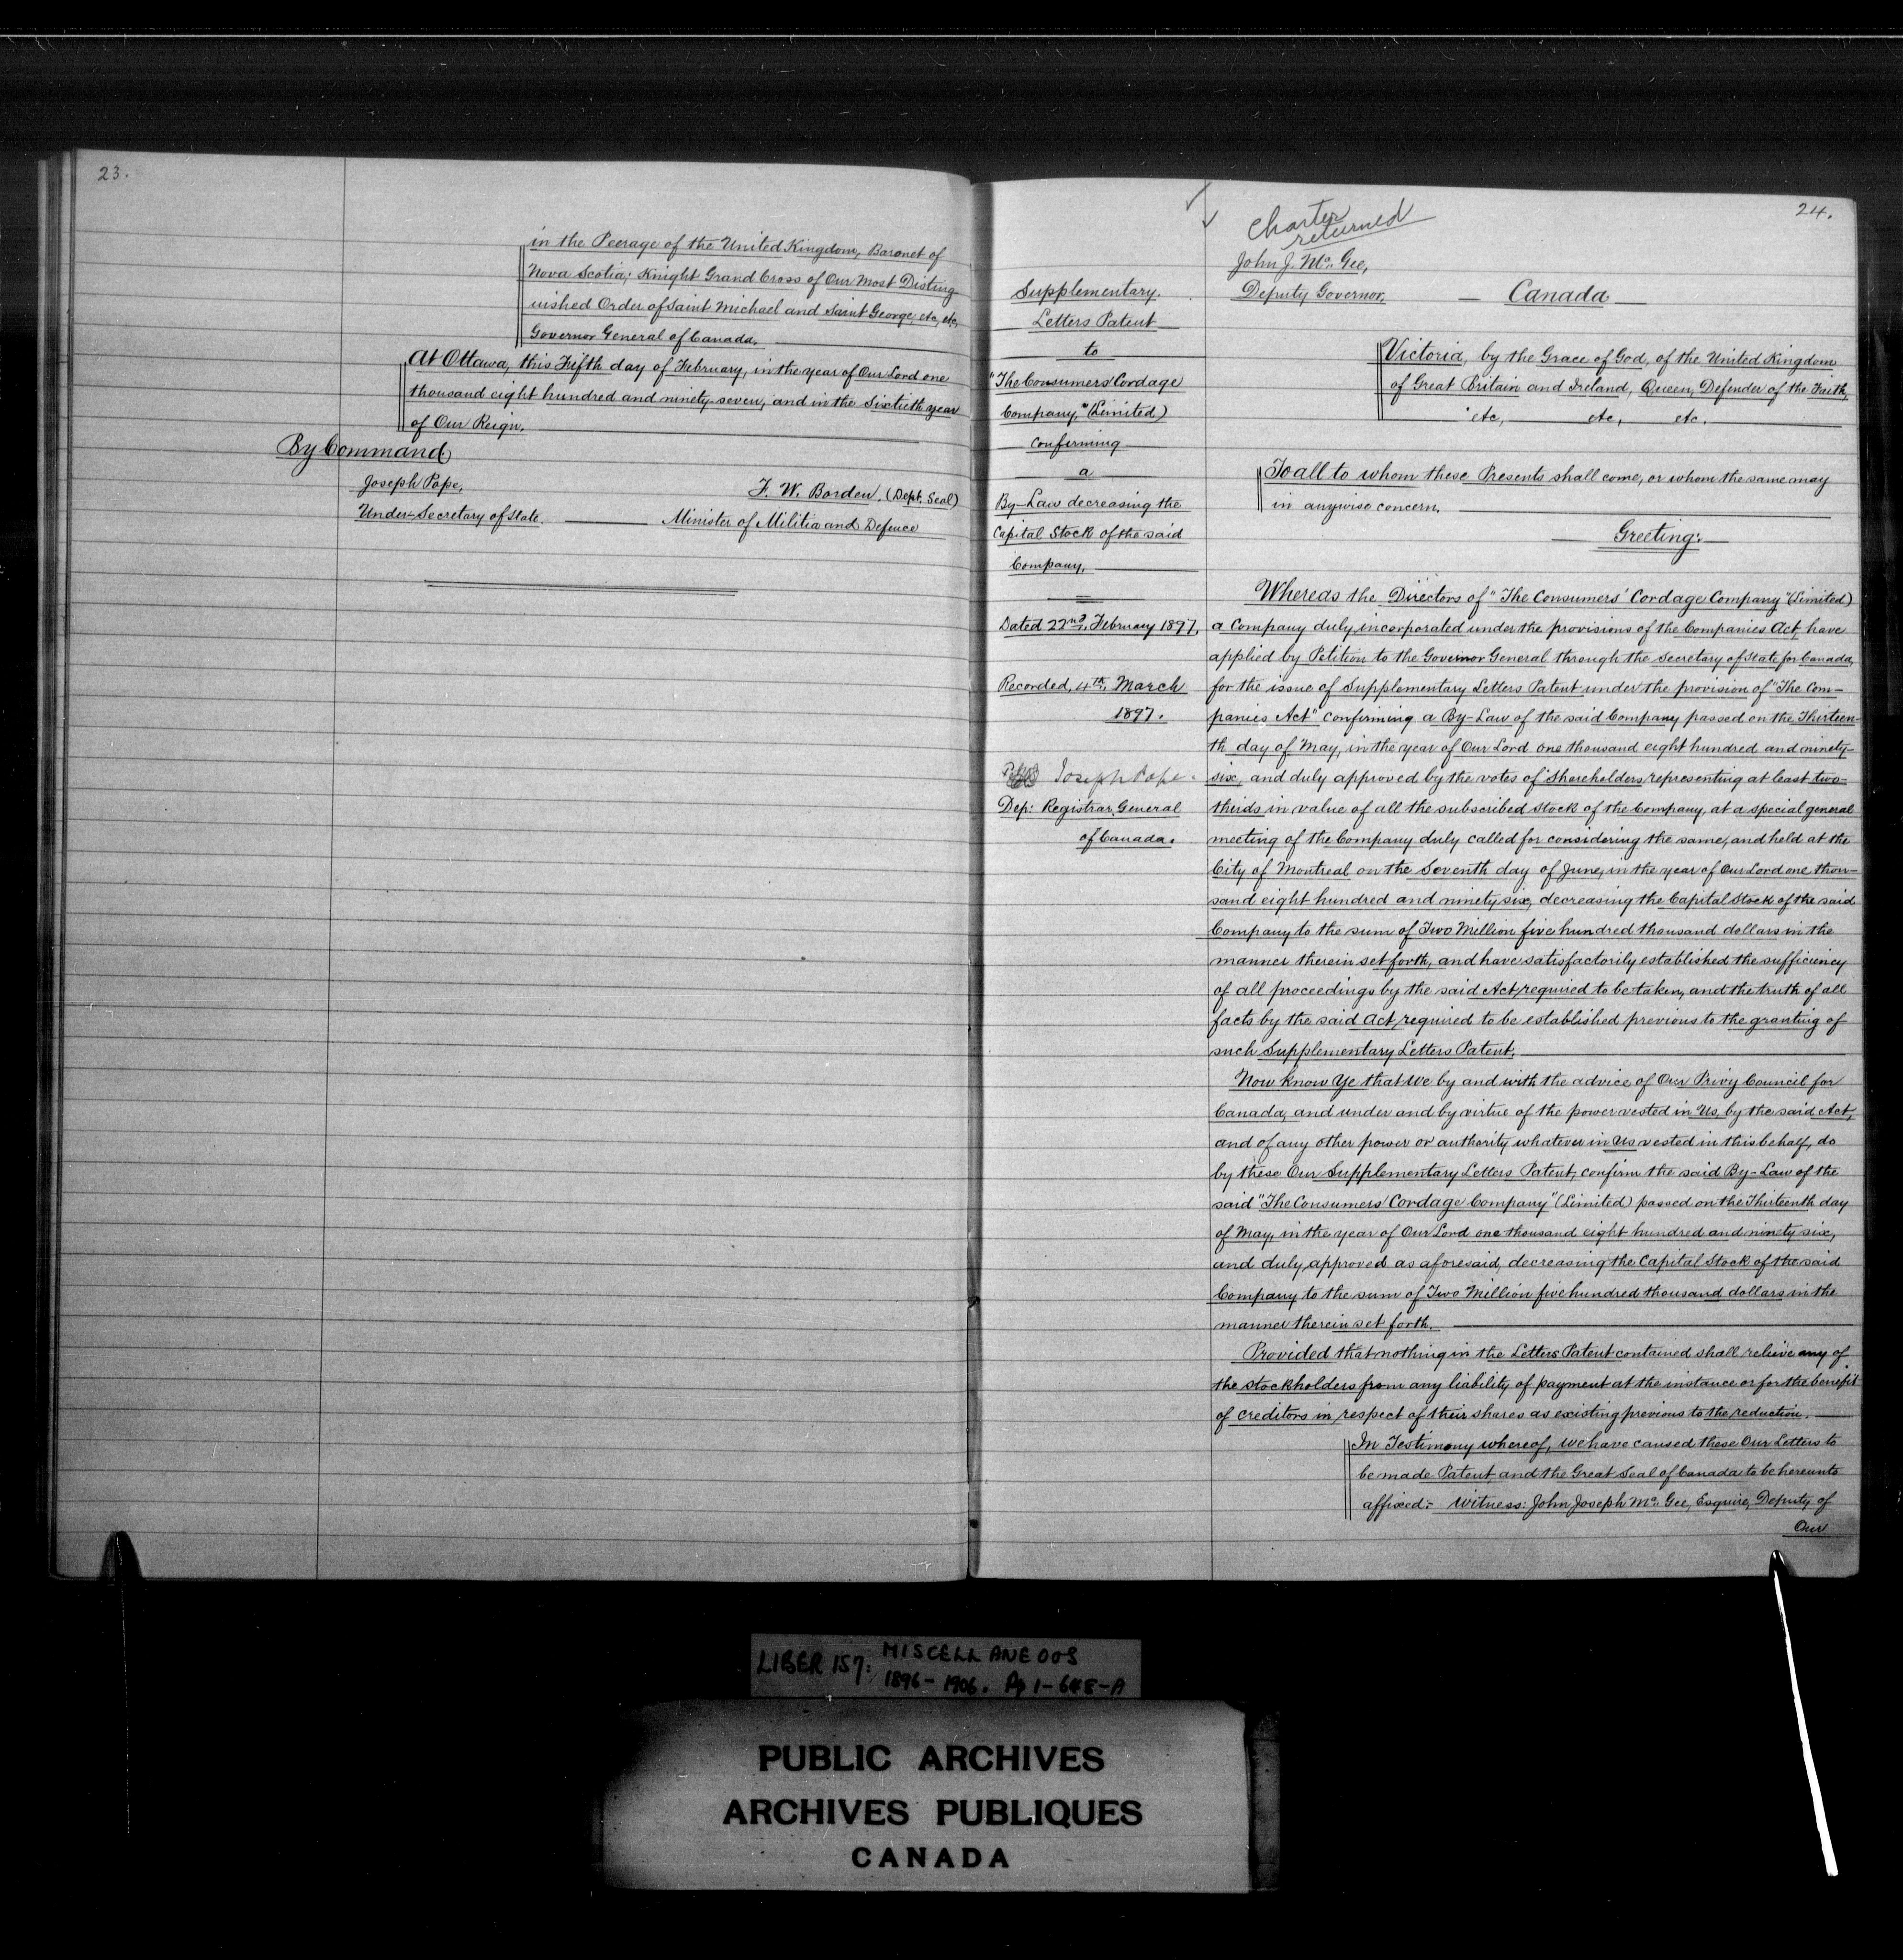 23.
in the Peerage of the United Kingdom, Baronet of
Nova Scotia; Knight Grand Cross of Our Most Disting-
uished Order of Saint Michael and Saint George, etc, etc,
Governor General of Canada.
At Ottawa, this Fifth day of February, in the year of Our Lord one
thousand eight hundred and ninety-seven, and in the Sixtieth year
of Our Reign.
By Command
Joseph Pope,
Under-Secretary of State.
F. W. Borden. (Dept. Seal)
Minister of Militia and Defence
24.
Charter
returned
John J. Mc. Gee,
Deputy Governor.
Canada
Supplementary.
Letters Patent
to
"The Consumers' Cordage
Company," (Limited)
confirming
a
By-Law decreasing the
Capital Stock of the said
Company.
Dated 22nd. February 1897.
Recorded, 4th. March
1897.
Joseph Pope.
Dep: Registrar General
of Canada.
Victoria, by the Grace of God, of the United Kingdom
of Great Britain and Ireland, Queen, Defender of the Faith,
etc, etc, etc.
To all to whom these Presents shall come, or whom the same may
in anywise concern.
Greeting:
Whereas the Directors of "The Consumers' Cordage Company" (Limited)
a Company duly incorporated under the provisions of the Companies Act, have
applied by Petition to the Governor General through the Secretary of State for Canada,
for the issue of Supplementary Letters Patent under the provision of "The Com-
panies Act" confirming a By-Law of the said Company passed on the Thirteen-
th day of May, in the year of Our Lord one thousand eight hundred and ninety-
six, and duly approved by the votes of Shareholders representing at least two-
thirds in value of all the subscribed stock of the Company, at a special general
meeting of the Company duly called for considering the same, and held at the
City of Montreal on the Seventh day of June, in the year of Our Lord one thou-
sand eight hundred and ninety six, decreasing the Capital Stock of the said
Company to the sum of Two Million five hundred thousand dollars in the
manner therein set forth, and have satisfactorily established the sufficiency
of all proceedings by the said Act required to be taken, and the truth of all
facts by the said Act required to be established previous to the granting of
such Supplementary Letters Patent.
Now Know Ye that We by and with the advice of Our Privy Council for
Canada, and under and by virtue of the power vested in Us, by the said Act,
and of any other power or authority whatever in Us vested in this behalf, do
by these Our Supplementary Letters Patent, confirm the said By-Law of the
said "The Consumers' Cordage Company" (Limited) passed on the Thirteenth day
of May, in the year of Our Lord one thousand eight hundred and ninety six,
and duly approved as aforesaid, decreasing the Capital Stock of the said
Company to the sum of Two Million five hundred thousand dollars in the
manner therein set forth.
Provided that nothing in the Letters Patent contained shall relieve any of
the stockholders from any liability of payment at the instance or for the benefit
of creditors in respect of their shares as existing previous to the reduction.
In Testimony whereof, we have caused these Our Letters to
be made Patent, and the Great Seal of Canada to be hereunto
affixed:- Witness: John Joseph Mc. Gee, Esquire, Deputy of
Our
LIBER 157: MISCELLANEOUS
1896-1906. Pp 1-648-A
PUBLIC ARCHIVES
ARCHIVES PUBLIQUES
CANADA